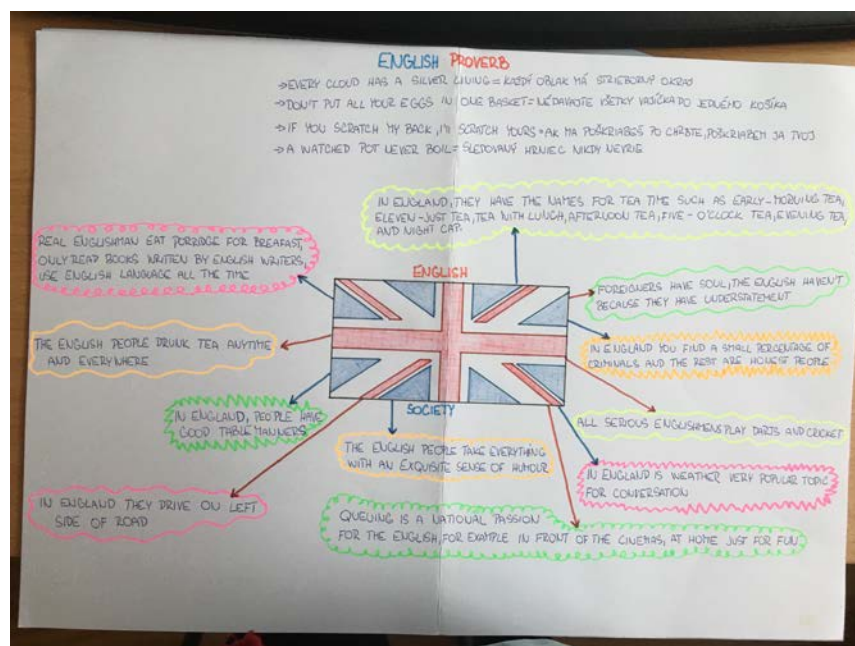 ENGLISH PROVERB
→EVERY CLOUD HAS A SILVER LIVING = KAŽDÝ OBLAK MÁ STRIEBORNÝ OKRAJ
→DON'T PUT ALL YOUR EGGS IN ONE BASKET = NEDÁVAJTE VŠETKY VAJÍČKA DO JEDNÉHO KOŠÍKA
→IF YOU SCRATCH MY BACK, I'll SCRATCH YOURS = AK MA POŠKRIABEŠ PO CHRBTE, POŠKRIABEM JA TVOJ
→A WATCHED POT NEVER BOIL = SLEDOVANÝ HRNIEC NIKDY NEVRIE
IN ENGLAND, THEY HAVE THE NAMES FOR TEA TIME SUCH AS EARLY-MORNING TEA,
ELEVEN-JUST TEA, TEA WITH LUNCH, AFTERNOON TEA, FIVE-O'CLOCK TEA, EVENING TEA
AND NIGHT CAP.
REAL ENGLISHMAN EAT PORRIDGE FOR BREAFAST,
ONLY READ BOOKS WRITTEN BY ENGLISH WRITERS,
USE ENGLISH LANGUAGE ALL THE TIME
ENGLISH
FOREIGNERS HAVE SOUL, THE ENGLISH HAVEN'T
BECAUSE THEY HAVE UNDERSTATEMENT
THE ENGLISH PEOPLE DRUNK TEA ANYTIME
AND EVERYWHERE
IN ENGLAND YOU FIND A SMALL PERCENTAGE OF
CRIMINALS AND THE REST ARE HONEST PEOPLE
IN ENGLAND, PEOPLE HAVE
GOOD TABLE MANNERS
SOCIETY
ALL SERIOUS ENGLISHMENS PLAY DARTS AND CRICKET
THE ENGLISH PEOPLE TAKE EVERYTHING
WITH AN EXQUISITE SENSE OF HUMOUR
IN ENGLAND IS WEATHER VERY POPULAR TOPIC
FOR CONVERSATION
IN ENGLAND THEY DRIVE ON LEFT
SIDE OF ROAD
QUEUING IS A NATIONAL PASSION
FOR THE ENGLISH, FOR EXAMPLE IN FRONT OF THE CINEMAS, AT HOME JUST FOR FUN